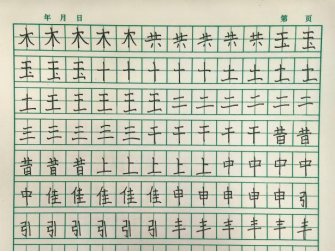 年 月 日 第 页
木 木 木 木 木 共 共 共 共 共 玉 玉
玉 玉 玉 十 十 十 十 十 土 土 土 土
土 王 王 王 王 王 二 二 二 二 二 三
三 三 三 三 干 干 干 干 干 昔 昔
昔 昔 昔 上 上 上 上 上 中 中 中 中
中 佳 佳 佳 佳 佳 申 申 申 申 申 引
引 引 引 引 引 引 丰 丰 丰 丰 丰